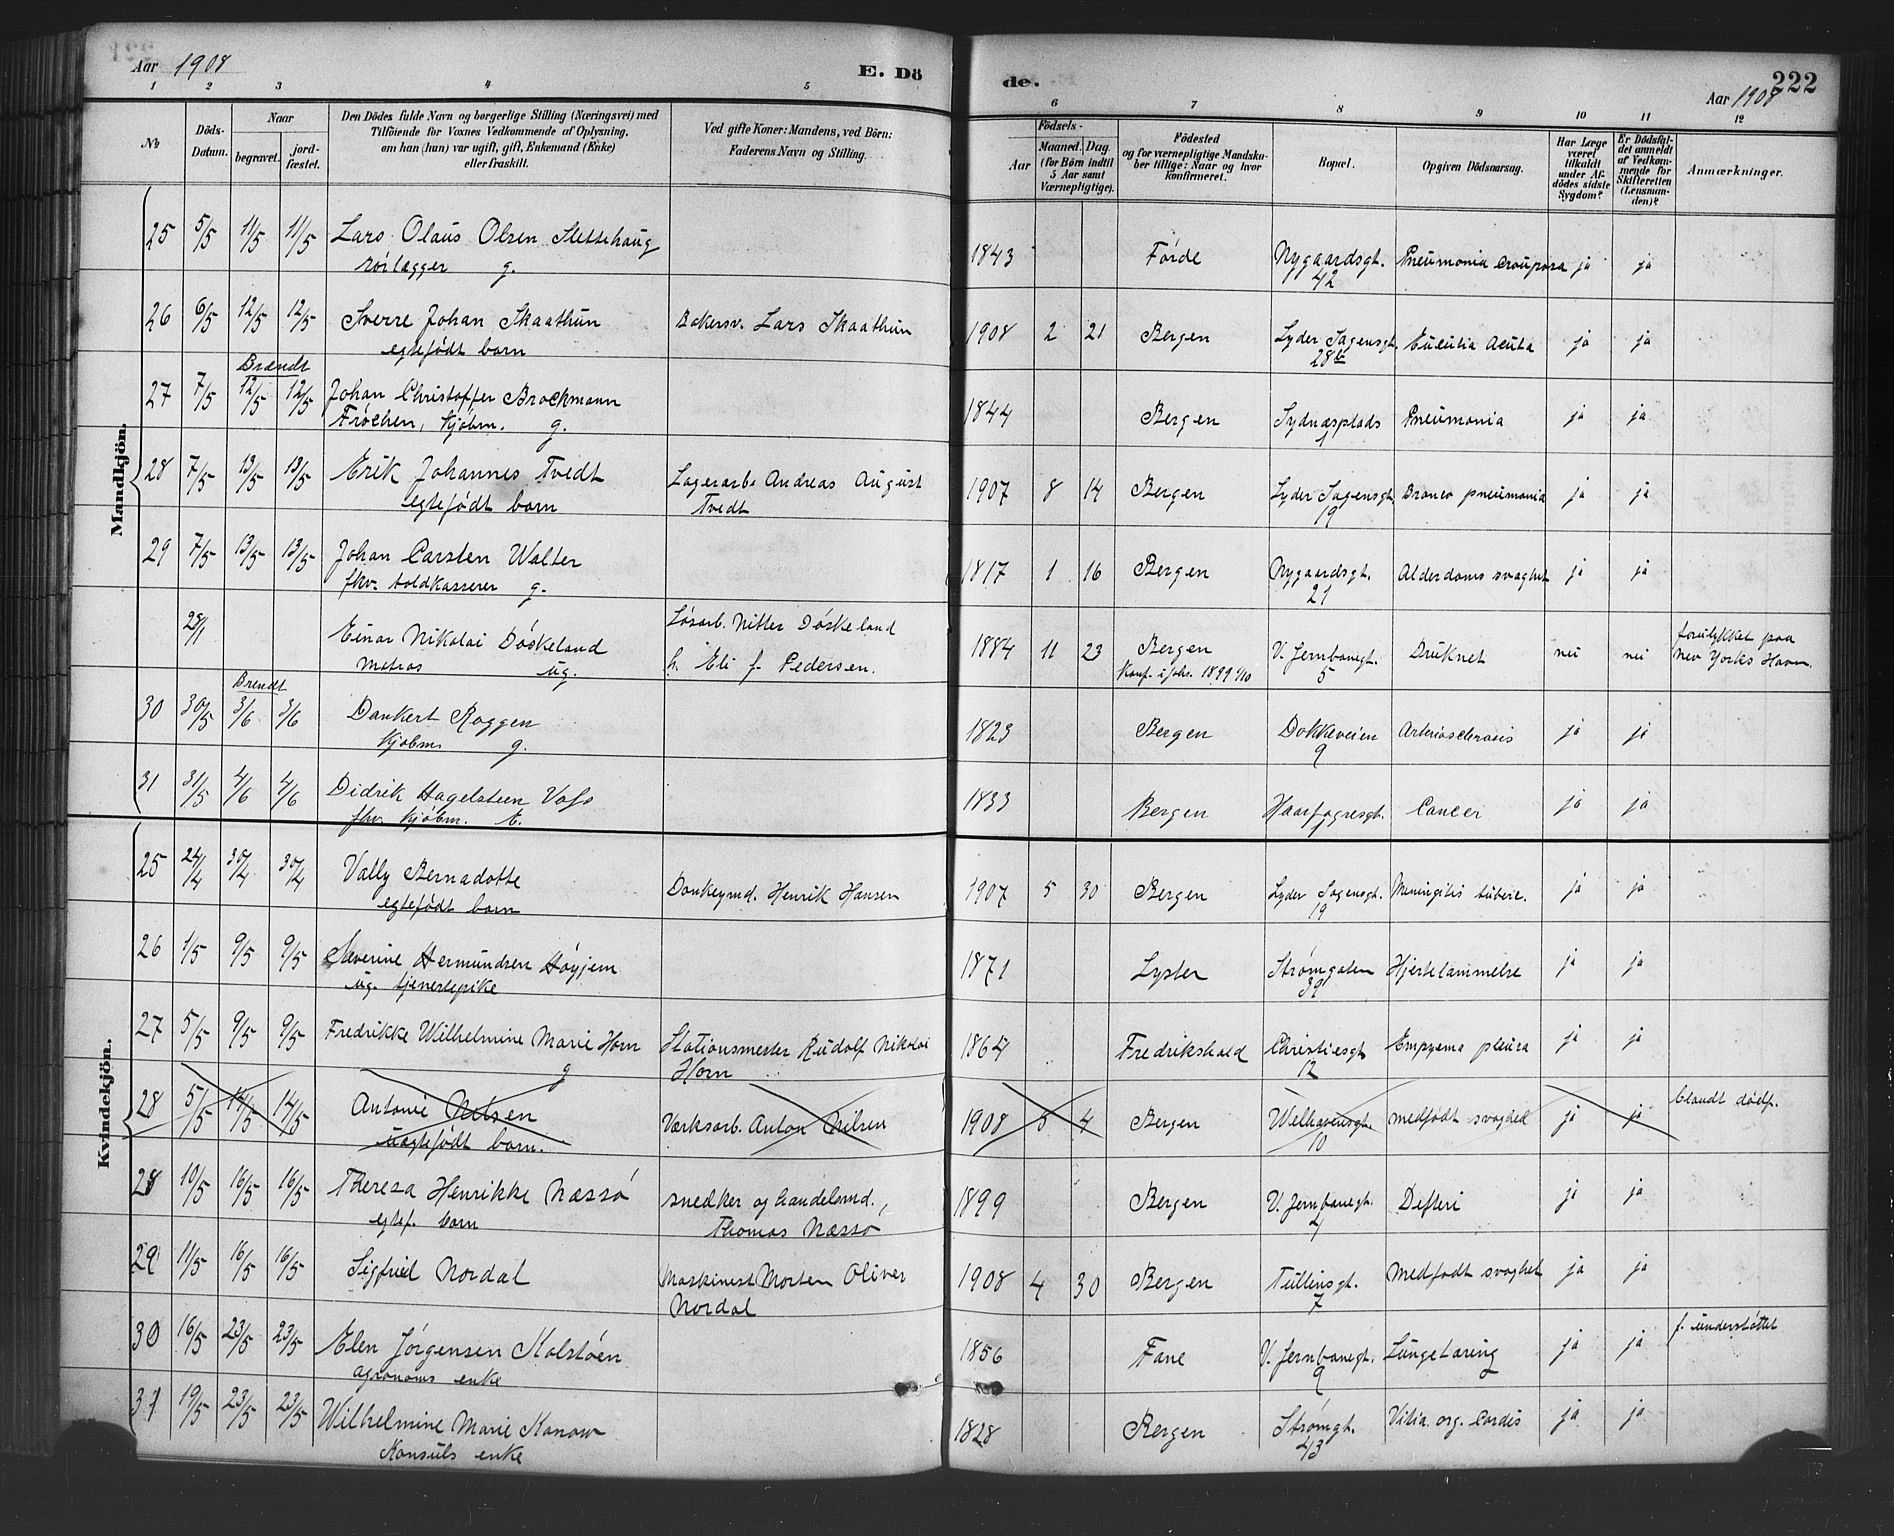 Aar 1908
E. Dö
de.
222
Aar 1908
1 2 3 4 5 6 7 8 9 10 11 12
No
Döds-Datum.
Naar
begravet.
jord-fæstet.
Den Dödes fulde Navn og borgerlige Stilling (Næringsvei) med
Tilföiende for Voxnes Vedkommende af Oplysning,
om han (hun) var ugift, gift, Enkemand (Enke)
eller fraskilt.
Ved gifte Koner: Mandens, ved Börn:
Faderens Navn og Stilling.
Födsels-
Aar
Maaned. Dag.
(for Börn indtil
5 Aar samt
Værnepligtige).
Födested
og for værnepligtige Mandska-
ber tillige: Naar og hvor
konfirmeret.
Bopæl.
Opgiven Dödsaarsag.
Har Læge
været
tilkaldt
under Af-
dödes sidste
Sygdom?
Er Dödsfal-
det anmeldt
af Vedkom-
mende for
Skifteretten
(Lensman-
den)?
Anmærkninger.
Mandkjön.
25 5/5 11/5 11/5 Lars Olaus Olsen Slettehaug 1843 Førde Nygaardsgt. Pneumonia crouposa ja ja
rørlægger g. 42
26 6/5 12/5 12/5 Sverre Johan Skaathun Bakersv. Lars Skaathun 1908 2 21 Bergen Lyder Sagensgt. Acuta ja ja
egtefødt barn 28b
Brændt
27 7/5 12/5 12/5 Johan Christoffer Brockmann 1844 Bergen Sydnæsplads Pneumonia ja ja
Frøchen, kjøbm. g. 1
28 7/5 13/5 13/5 Erik Johannes Tvedt Lagerarb. Andreas August 1907 8 14 Bergen Lyder Sagensgt. Bronco pneumonia ja ja
egtefødt barn Tvedt 19
29 7/5 13/5 13/5 Johan Carsten Walter 1817 1 16 Bergen Nygaardsgt. Alderdoms svaghet ja ja
fhv. toldkasserer g. 21
28/1 Einar Nikolai Døskeland Løsarb. Nitter Døskeland 1884 11 23 Bergen V. Jernbanegt. Druknet nei nei forulykket paa
matros ug. h. Eli f. Pedersen. Konf. i Johs. 1899 1/10 5 New Yorks Havn
Brændt
30 30/5 3/6 3/6 Dankert Roggen 1823 Bergen Dokkeveien Arteriosclerosis ja ja
kjøbm. g. 9
31 31/5 4/6 4/6 Didrik Hagelsteen Voss 1833 Bergen Haarfagresgt. Cancer ja ja
fhv. kjøbm. E. 1
Kvindekjön.
25 24/4 30/4 30/4 Vally Bernadotte Donkeymd. Henrik Hansen 1907 5 30 Bergen Lyder Sagensgt. Meningitis tuberc. ja ja
egtefødt barn 19
26 1/5 9/5 9/5 Severine Hermundsen Høyjem 1871 Lyster Strømgaten Hjertelammelse ja ja
ug. tjenestepike 39
27 5/5 9/5 9/5 Fredrikke Wilhelmine Marie Horn Stationsmester Rudolf Nikolai 1864 Fredrikshald Christiesgt Empyema pleura ja ja
g Horn 12
28 5/5 14/5 14/5 Antonie Nilsen Værksarb. Anton Nilsen 1908 5 4 Bergen Welhavensgt. medfødt svaghed ja ja blandt dødf.
uægtefødt barn. 10
28 10/5 16/5 16/5 Theresa Henrikke Næssø snedker og handelsmd., 1899 Bergen V. Jernbanegt. Defteri ja ja
egtef. barn Thomas Næssø 4
29 11/5 16/5 16/5 Sigfried Nordal Maskinist Morten Oliver 1908 4 30 Bergen Tullinsgt. Medfødt svaghet ja ja
Nordal 7
30 16/5 23/5 23/5 Elen Jørgensen Kolstøen 1856 Fane V. Jernbanegt. Lungetæring ja ja f. understøttet
agronoms enke 9
31 19/5 23/5 23/5 Wilhelmine Marie Konow 1828 Bergen Strømgt. Vitia org. cordis ja ja
Konsuls enke 43